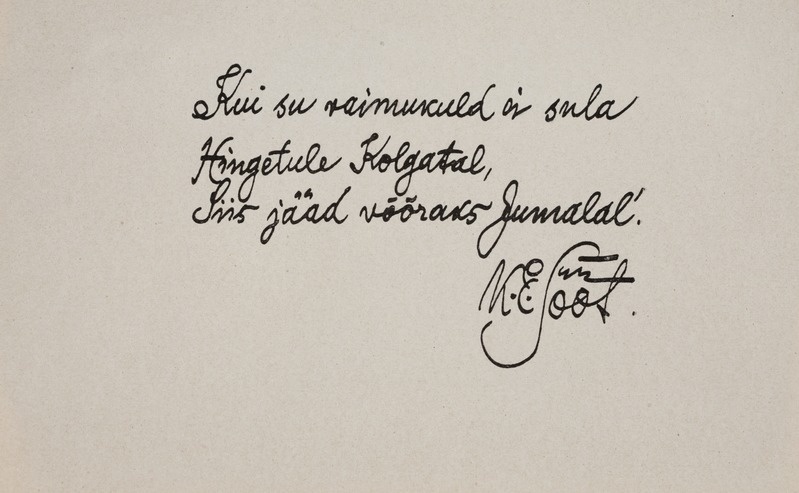 Kui su vaimukuld ei sula
Hingetule Kolgatal,
Siis jääd võõraks Jumalal'.
K. E. Sööt.